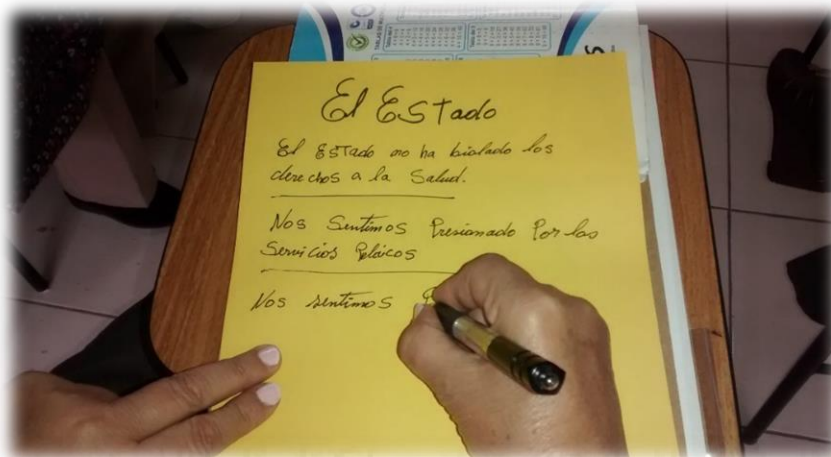 El Estado
El Estado no ha biolado los
derechos a la Salud.
Nos Sentimos Presionado Por los
Servicios
Nos sentimos